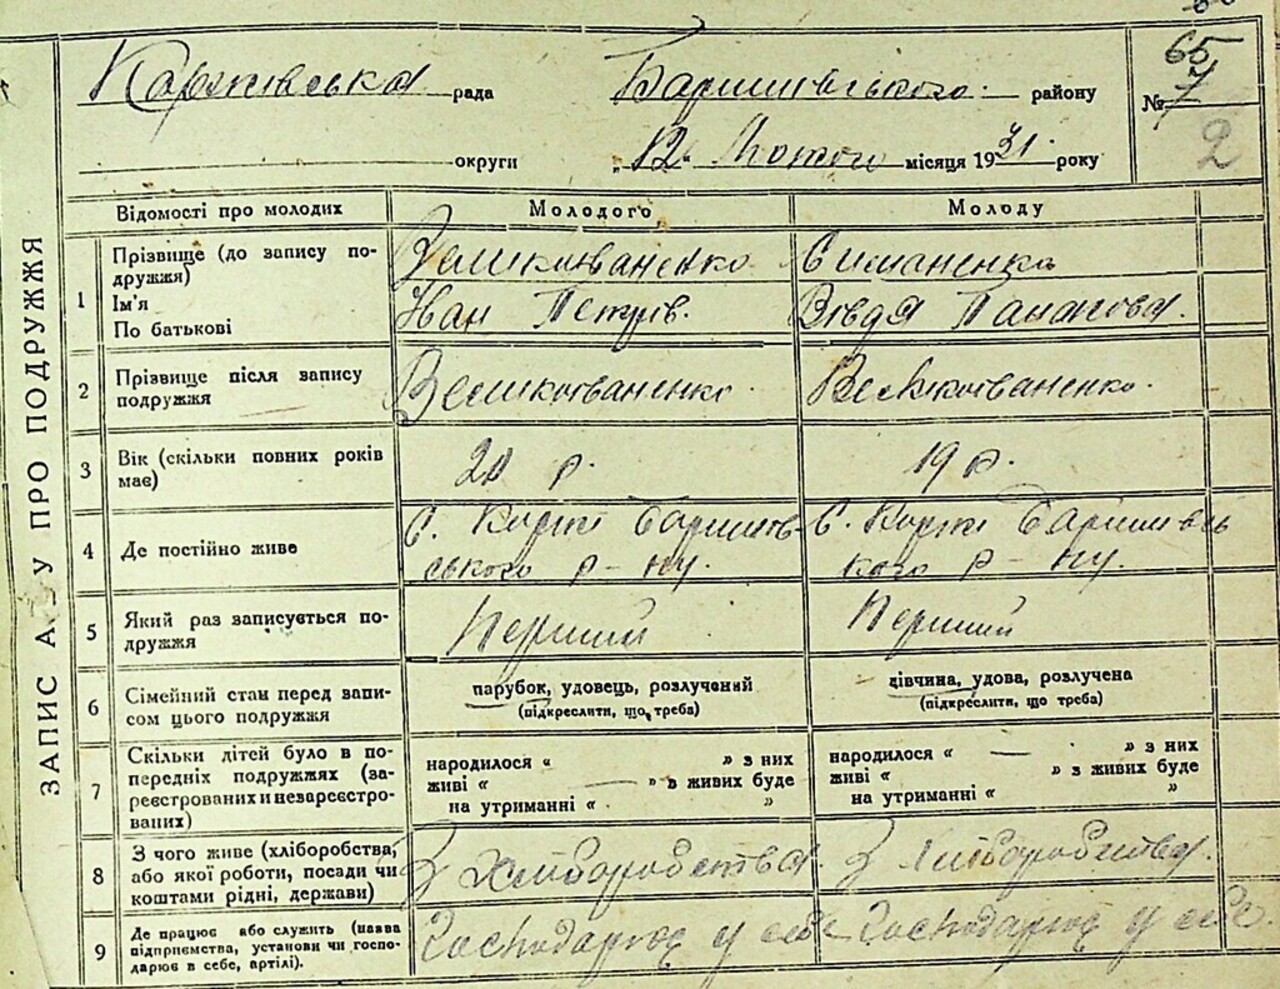 65
Коржівська рада Баришівського району № 7
округи „12“ Лютого місяця 1931 року 2
ЗАПИС АКТУ ПРО ПОДРУЖЖЯ
Відомості про молодих Молодого Молоду
1 Прізвище (до запису по-
дружжя) Великоіваненко Симаненко
Ім'я
По батькові Іван Петрів. Вівдя Панасова.
2 Прізвище після запису
подружжя Великоіваненко Великоіваненко.
3 Вік (скільки повних років
має) 20 р. 19 р.
4 Де постійно живе С. Коржі Баришів- С. Коржі Баришівсь
ського р-ну. кого р-ну.
5 Який раз записується по-
дружжя Перший Перший
6 Сімейний стан перед запи-
сом цього подружжя парубок, удовець, розлучений дівчина, удова, розлучена
(підкреслити, що треба) (підкреслити, що треба)
7 Скільки дітей було в по-
передніх подружжях (за-
реєстрованих и незареєстро-
ваних) народилося « » з них народилося « — » з них
живі « — » в живих буде живі « » з живих буде
на утриманні « » на утриманні « »
8 З чого живе (хліборобства,
або якої роботи, посади чи
коштами рідні, держави) З хліборобства. З хліборобства.
9 Де працює або служить (назва
підприємства, установи чи госпо-
дарює в себе, артілі). Господарює у себе Господарює у себе.